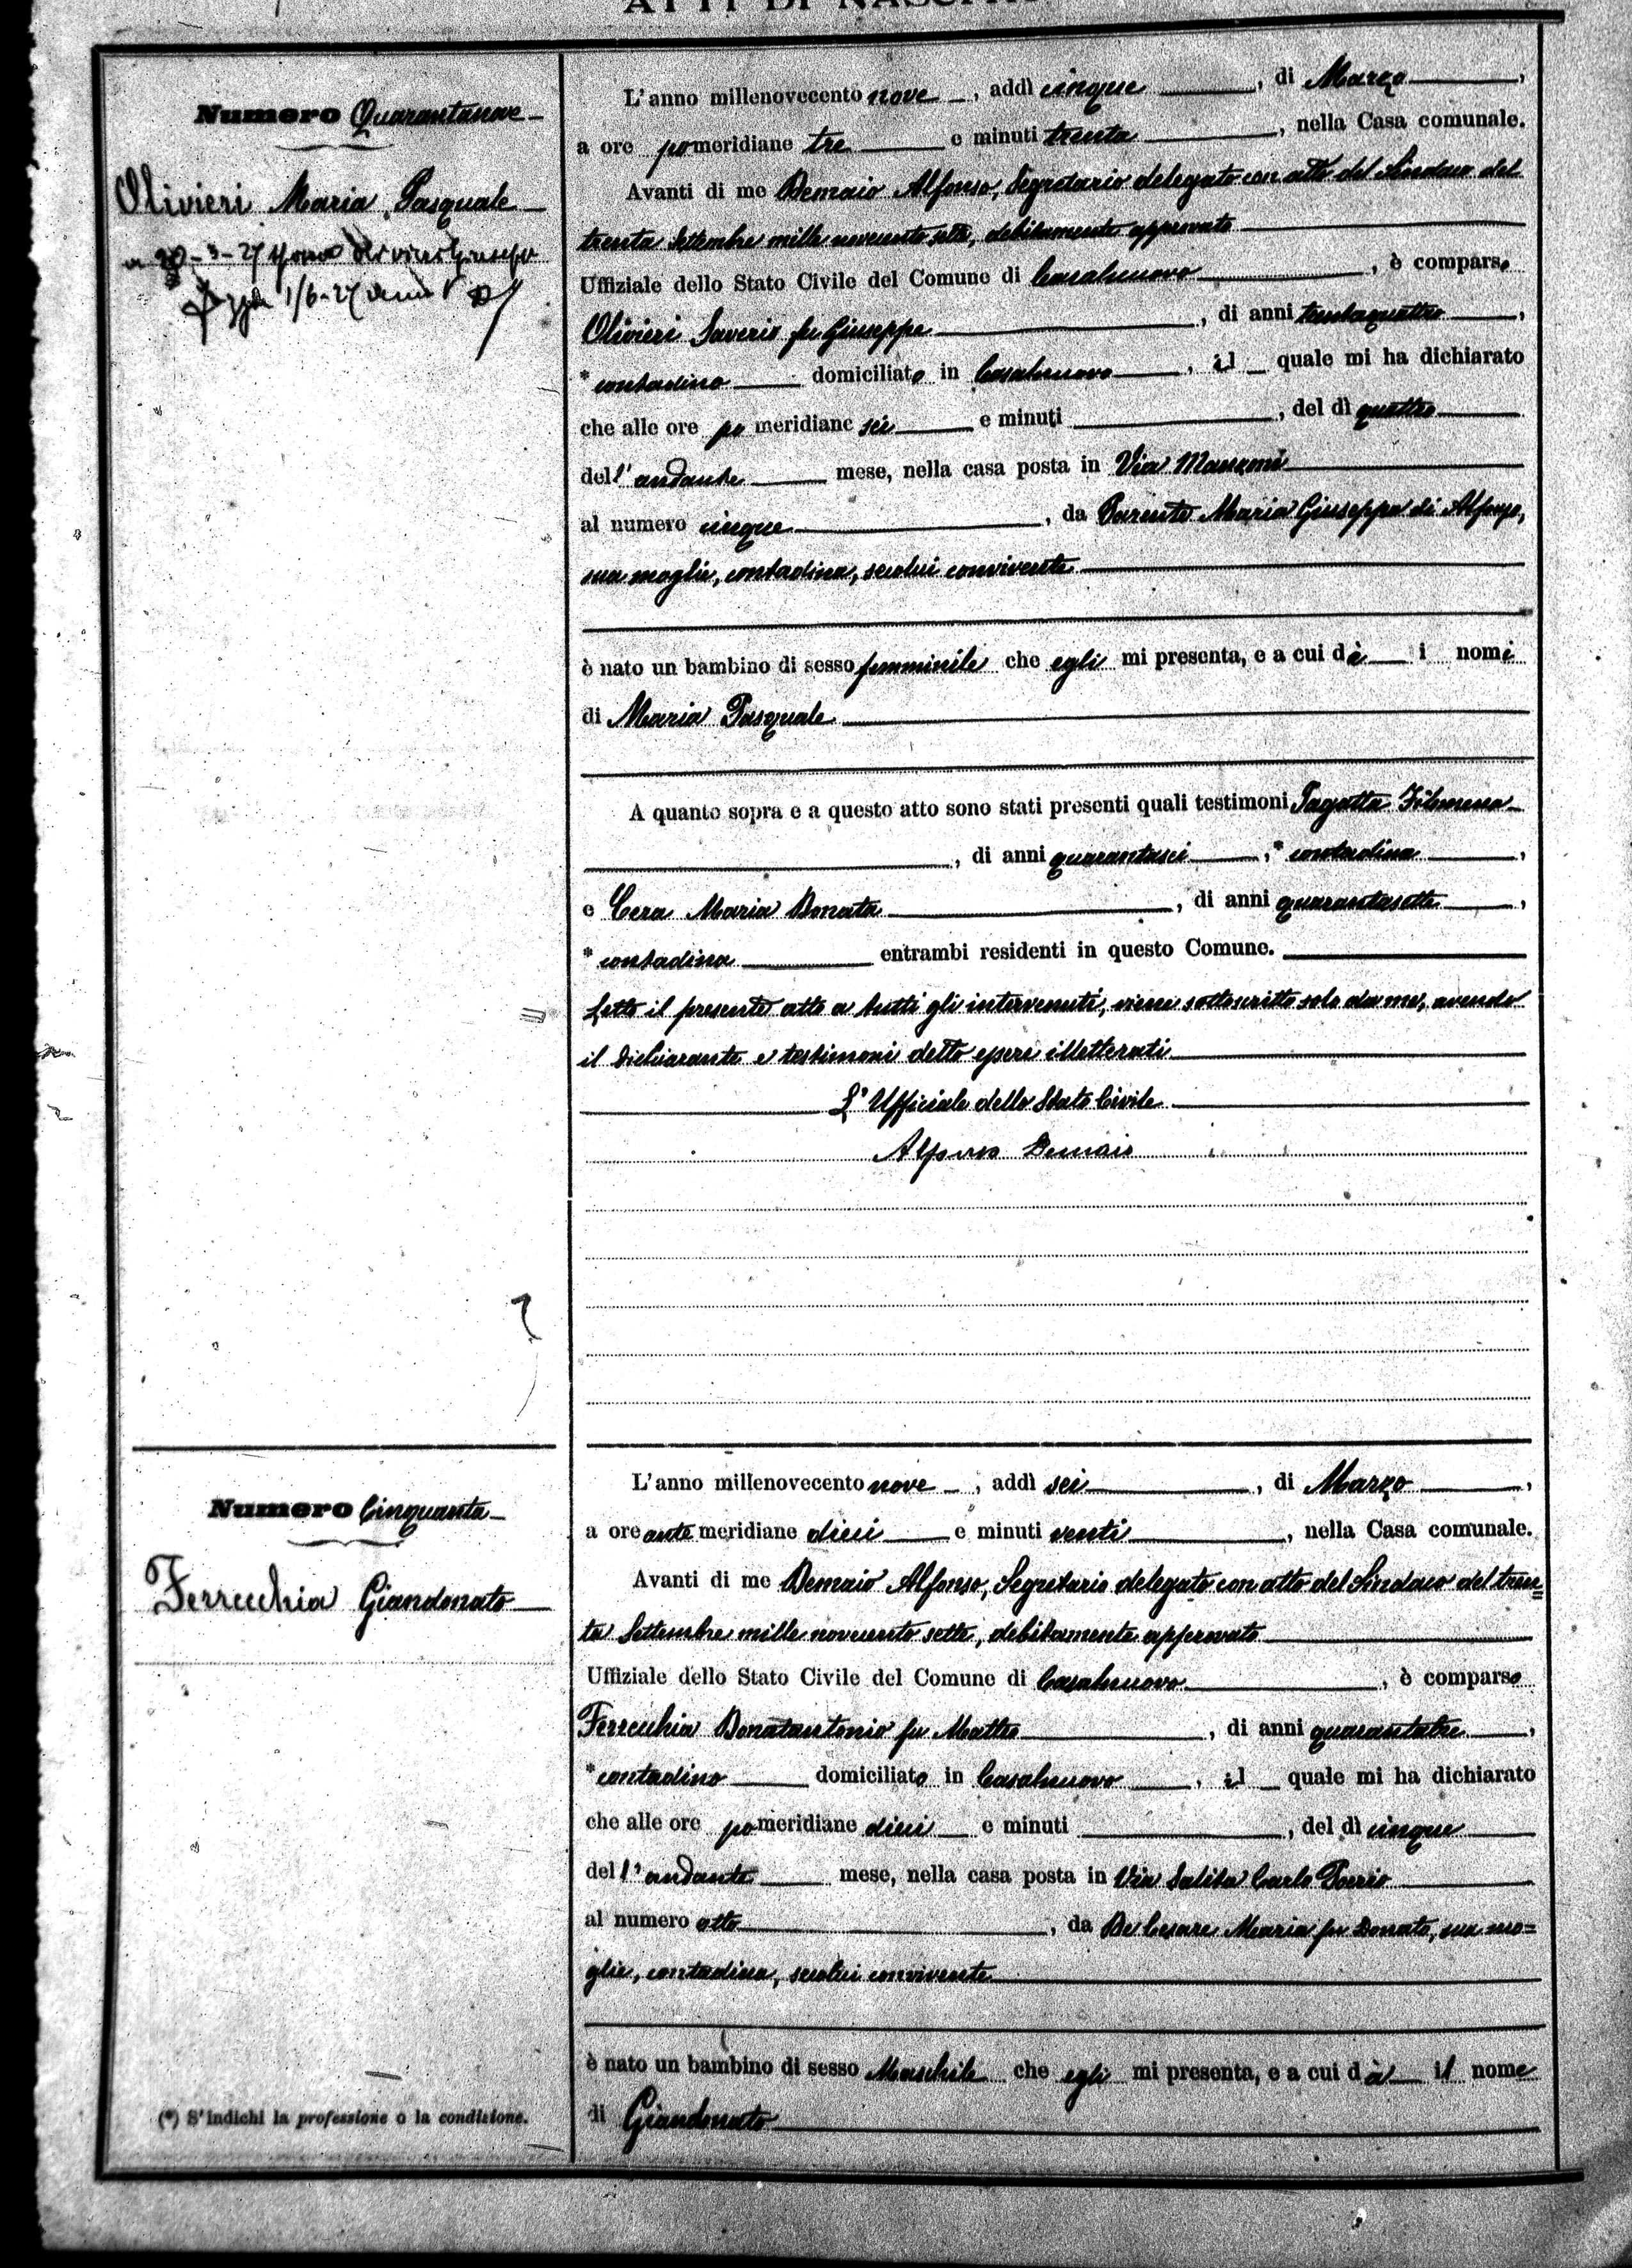 ATTI DI NASCITA
Numero Quarantanove
Olivieri Maria Pasquale
a 20-3-27 sposò Olivieri Giuseppe
1/6-27
L'anno millenovecento nove, addì cinque, di Marzo,
a ore pomeridiane tre e minuti trenta, nella Casa comunale.
Avanti di me Demaio Alfonso, Segretario delegato con atto del Sindaco del
trenta Settembre mille novecento sette, debitamente approvato
Uffiziale dello Stato Civile del Comune di Casalnuovo, è comparso
Olivieri Saverio fu Giuseppe, di anni trentaquattro,
* contadino domiciliato in Casalnuovo, il quale mi ha dichiarato
che alle ore pomeridiane sei e minuti, del dì quattro
dell'andante mese, nella casa posta in Via Manzoni
al numero cinque, da Parente Maria Giuseppa di Alfonso,
sua moglie, contadina, secolui convivente
è nato un bambino di sesso femminile che egli mi presenta, e a cui dà i nomi
di Maria Pasquale
A quanto sopra e a questo atto sono stati presenti quali testimoni Pagatta Filomena
, di anni quarantasei, * contadina,
e Cera Maria Donata, di anni quarantasette,
* contadina entrambi residenti in questo Comune.
Letto il presente atto a tutti gli intervenuti, viene sottoscritto solo da me, avendo
il dichiarante e testimoni detto essere illetterati
L'Ufficiale dello Stato Civile
Alfonso Demaio
Numero Cinquanta
Ferrecchia Giandonato
L'anno millenovecento nove, addì sei, di Marzo,
a ore antemeridiane dieci e minuti venti, nella Casa comunale.
Avanti di me Demaio Alfonso, Segretario delegato con atto del Sindaco del tren=
ta Settembre mille novecento sette, debitamente approvato
Uffiziale dello Stato Civile del Comune di Casalnuovo, è comparso
Ferrecchia Donatantonio fu Matteo, di anni quarantatre,
* contadino domiciliato in Casalnuovo, il quale mi ha dichiarato
che alle ore pomeridiane dieci e minuti, del dì cinque
dell'andante mese, nella casa posta in Via Salita Carlo Poerio
al numero otto, da De Cesare Maria fu Donato, sua mo=
glie, contadina, secolui convivente
è nato un bambino di sesso Maschile che egli mi presenta, e a cui dà il nome
di Giandonato
(*) S'indichi la professione o la condizione.